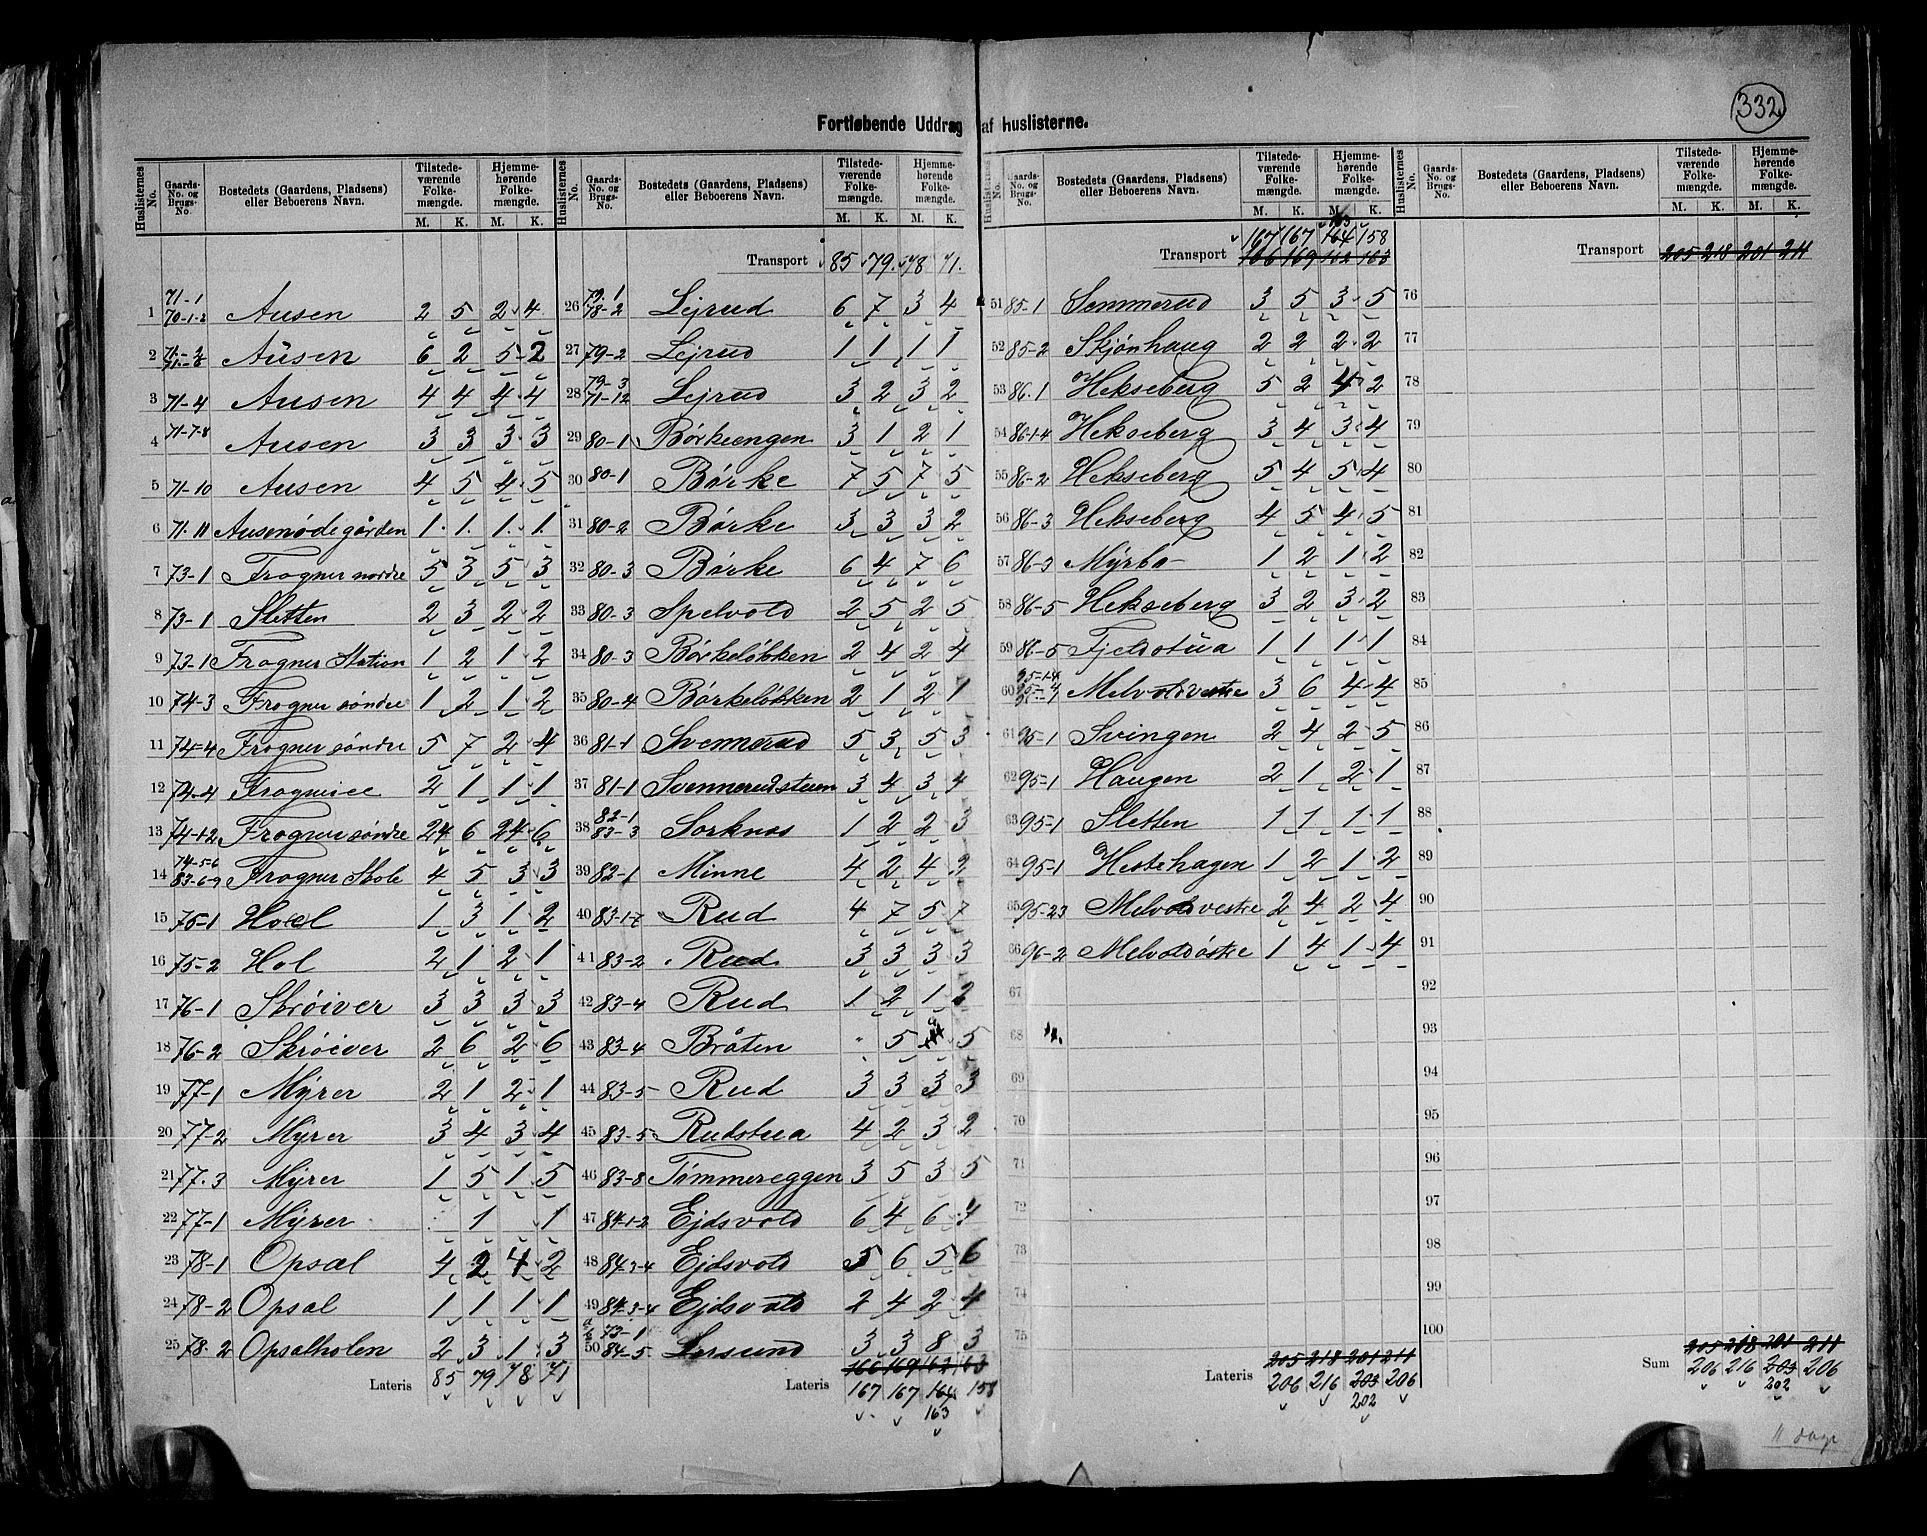 332
Fortløbende Uddrag af huslisterne.
Huslisternes No. | Gaards-No. og Brugs-No. | Bostedets (Gaardens, Pladsens) eller Beboerens Navn. | Tilstedeværende Folkemængde. M. K. | Hjemmehørende Folkemængde. M. K.
1 71-1 70-1-2 Ausen 2 5 2 4
2 Ausen 6 2 5 2
3 71-4 Ausen 4 4 4 4
4 71-7-8 Ausen 3 3 3 3
5 71-10 Ausen 4 5 4 5
6 71-11 Ausenødegården 1 1 1 1
7 73-1 Frogner nordre 5 3 5 3
8 73-1 Sletten 2 3 2 2
9 73-1 Frogner Station 1 2 1 2
10 74-3 Frogner søndre 1 2 1 2
11 74-4 Frogner søndre 5 7 2 4
12 74-4 2 1 1 1
13 74-1-2 Frogner søndre 24 6 24 6
14 74-5-6 83-6-9 Frogner Skole 4 5 3 3
15 75-1 Hoel 1 3 1 2
16 75-2 Hol 2 1 2 1
17 76-1 Skrøiver 3 3 3 3
18 76-2 Skrøiver 2 6 2 6
19 77-1 Myrer 2 1 2 1
20 77-2 Myrer 3 4 3 4
21 77-3 Myrer 1 5 1 5
22 77-1 Myrer 1 1
23 78-1 Opsal 4 2 4 2
24 78-2 Opsal 1 1 1 1
25 78-2 Opsalholen 2 3 1 3
Lateris 85 79 78 71
Huslisternes No. | Gaards-No. og Brugs-No. | Bostedets (Gaardens, Pladsens) eller Beboerens Navn. | Tilstedeværende Folkemængde. M. K. | Hjemmehørende Folkemængde. M. K.
Transport 85 79 78 71
26 79-1 78-2 Lejrud 6 7 3 4
27 79-2 Lejrud 1 1 1 1
28 79-3 71-12 Lejrud 3 2 3 2
29 80-1 Børkeengen 3 1 2 1
30 80-1 Børke 7 5 7 5
31 80-2 Børke 3 3 3 2
32 80-3 Børke 6 4 7 6
33 80-3 Spelvold 2 5 2 5
34 80-3 Børkeløkken 2 4 2 4
35 80-4 Børkeløkken 2 1 2 1
36 81-1 Svennerud 5 3 5 3
37 81-1 Svennerudstuen 3 4 3 4
38 82-1 83-3 Sorknæs 1 2 2 3
39 82-1 Minne 4 2 4 2
40 83-1-7 Rud 4 7 5 7
41 83-2 Rud 3 3 3 3
42 83-4 Rud 1 2 1 2
43 83-4 Bråten " 5 5
44 83-5 Rud 3 3 3 3
45 83-5 Rudstua 4 2 3 2
46 83-8 Tømmereggen 3 5 3 5
47 84-1-2 Ejdsvold 6 4 6 4
48 84-3-4 Ejdsvold 5 6 5 6
49 84-3-4 Ejdsvold 2 4 2 4
50 73-1 84-5 Lorsund 3 3 8 3
166 169 162 163
Lateris 167 167 164 158
163
Huslisternes No. | Gaards-No. og Brugs-No. | Bostedets (Gaardens, Pladsens) eller Beboerens Navn. | Tilstedeværende Folkemængde. M. K. | Hjemmehørende Folkemængde. M. K.
163
167 167 164 158
Transport 166 169 162 163
51 85-1 Semmerud 3 5 3 5
52 85-2 Skjønhaug 2 2 2 2
53 86-1 Hekseberg 5 2 4 2
54 86-1-4 Hekseberg 3 4 3 4
55 86-2 Hekseberg 5 4 5 4
56 86-3 Hekseberg 4 5 4 5
57 86-3 Myrbo 1 2 1 2
58 86-5 Hekseberg 3 2 3 2
59 86-5 Fjeldstua 1 1 1 1
60 Melvold vestre 3 6 4 4
61 95-1 Svingen 2 4 2 5
62 95-1 Haugen 2 1 2 1
63 95-1 Sletten 1 1 1 1
64 95-1 Hestehagen 1 2 1 2
65 95-23 Melvold vestre 2 4 2 4
66 96-2 Melvold østre 1 4 1 4
67
68
69
70
71
72
73
74
75
205 218 201 211
Lateris 206 216 203 206
202
Huslisternes No. | Gaards-No. og Brugs-No. | Bostedets (Gaardens, Pladsens) eller Beboerens Navn. | Tilstedeværende Folkemængde. M. K. | Hjemmehørende Folkemængde. M. K.
Transport 205 218 201 211
76
77
78
79
80
81
82
83
84
85
86
87
88
89
90
91
92
93
94
95
96
97
98
99
100
205 218 201 211
Sum 206 216 203 206
202
11 dage